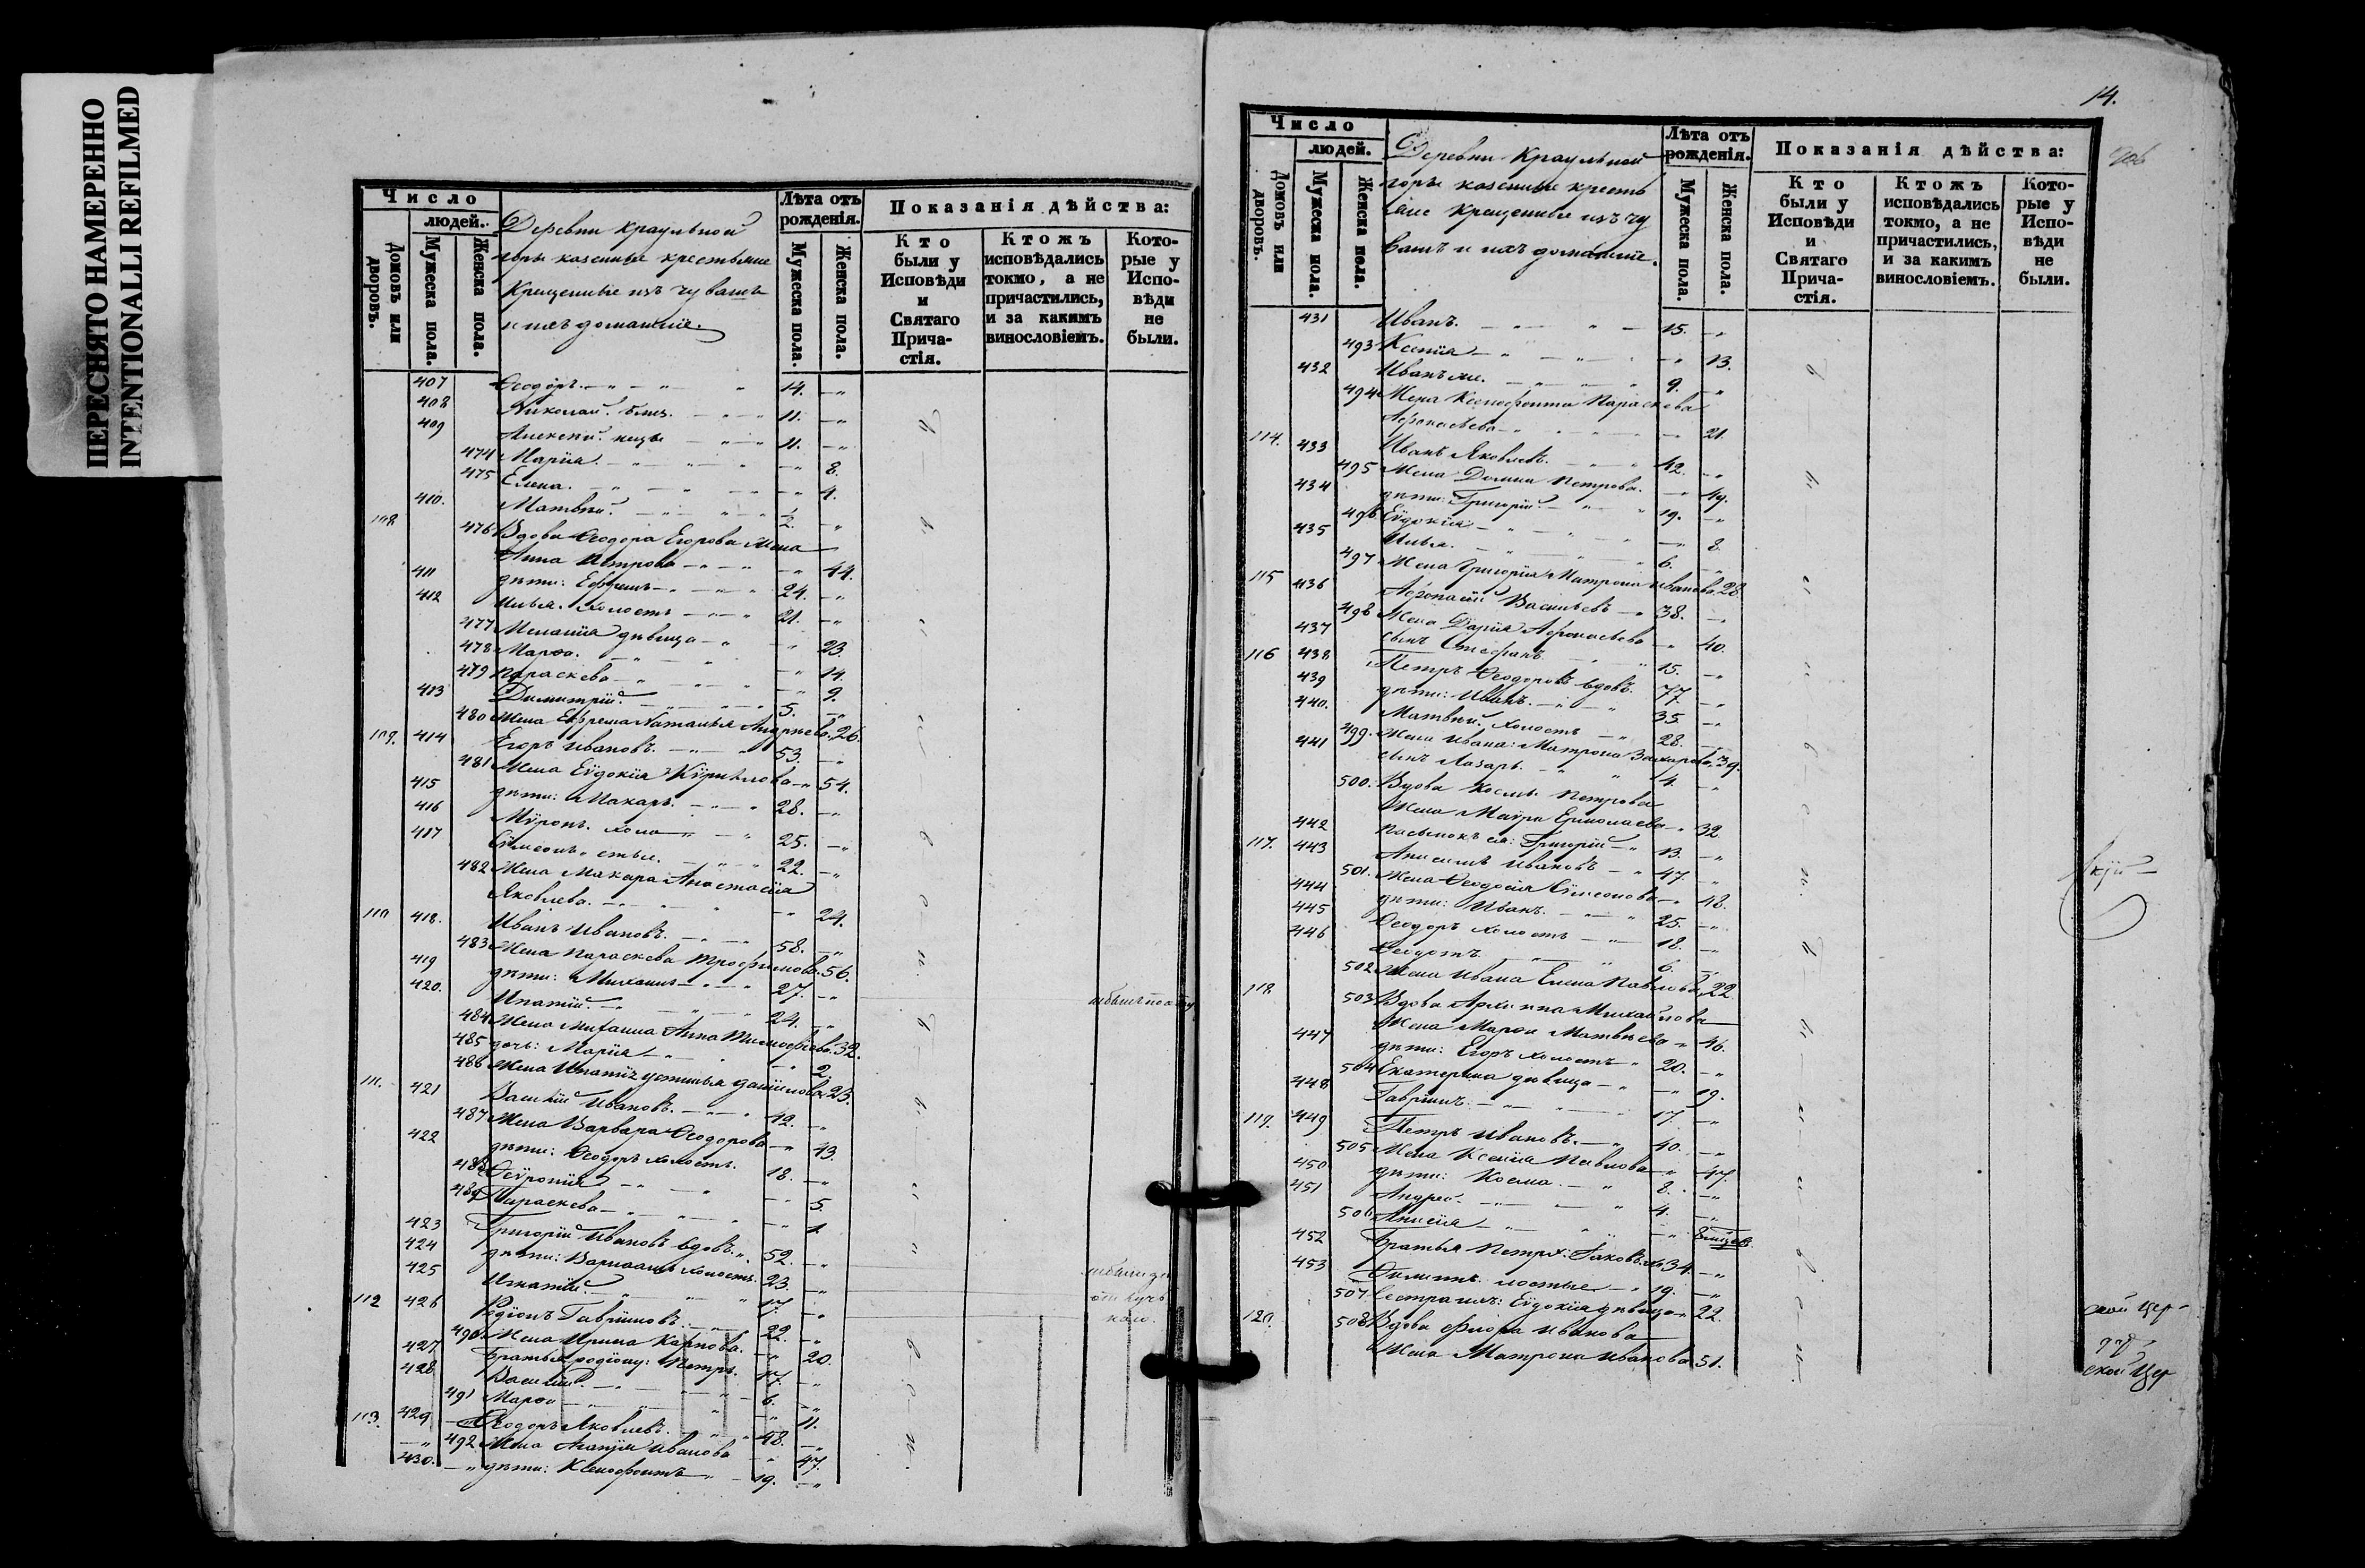 ПЕРЕСНЯТО НАМЕРЕННО
INTENTIONALLI REFILMED
Число
людей.
Домовъ или дворовъ.
Мужеска пола.
Женска пола.
Деревни Краульной
горы казенные крестьяне
крещенные изъ чувашъ
и ихъ домашніе.
Лѣта отъ рожденія.
Мужеска пола.
Женска пола.
Показанія дѣйства:
Кто были у Исповѣди и Святаго Прича-стія.
Ктожъ исповѣдались токмо, а не причастились, и за какимъ винословіемъ.
Кото-рые у Испо-вѣди не были.
407 Ѳеодоръ. 14.
408 Николай. 11.
409 Алексѣй. 11.
474 Марія. 8.
475 Елена. 4.
410. Матвѣй. ½.
108. 476 Вдова Ѳеодора Егорова жена
Анна Петрова 44.
411 дѣти: Ефремъ 24.
412 Илья. холостъ 21.
477 Меланія дѣвица 23.
478 Марѳа. 14.
479 Параскева 9.
413 Димитрій. 5.
480 Жена Ефрема Наталья Андреева. 26.
109. 414 Егоръ Ивановъ. 53.
481 Жена Еѵдокія Кѵрилова 54.
415 дѣти: Макаръ. 28.
416 Мѵронъ. холо 25.
417 Сѵмеонъ. стые. 22.
482 Жена Макара Анастасія
Яковлева. 24.
110 418. Иванъ Ивановъ. 58.
483 Жена Параскева Трофимова. 56.
419 дѣти: Михаилъ 27.
420. Игнатій. 24.
484 Жена Михаила Анна Тимофеева. 32.
485 дочь: Марія 2.
486 Жена Игнатія Устинья Даніилова 23.
111. 421 Василій Ивановъ. 42.
487 Жена Варвара Ѳеодорова 43.
422 дѣти: Ѳеодоръ холостъ. 18.
488 Ѳеѵронія 5.
489 Параскева 1
423 Григорій Ивановъ вдовъ. 52.
424 дѣти: Варлаамъ холостъ. 23.
425 Игнатій. 17.
112 426 Родіонъ Гавриловъ. 22.
490 Жена Ирина Карпова. 20.
427 Братья Родіону: Петръ. 17.
428 Василій. 6.
491 Марѳа 11.
113. 429 Ѳеодоръ Яковлевъ. 48.
492 Жена Агапія Иванова 47.
430. дѣти: Ксенофонтъ 19.
14.
Число
людей.
Домовъ или дворовъ.
Мужеска пола.
Женска пола.
Деревни Краульной
горы казенные кресть
яне крещенные изъ чу
вашъ и ихъ домашніе.
Лѣта отъ рожденія.
Мужеска пола.
Женска пола.
Показанія дѣйства:
Кто были у Исповѣди и Святаго Прича-стія.
Ктожъ исповѣдались токмо, а не причастились, и за какимъ винословіемъ.
Кото-рые у Испо-вѣди не были.
431 Иванъ. 15.
493 Ксенія 13.
432 Иванъ 9.
494 Жена Ксенофонта Параскева
Афонасьева 21.
114. 433 Иванъ Яковлевъ. 42.
495 Жена Домна Петрова. 49.
434 дѣти: Григорій 19.
496 Еѵдокія 8.
435 Илья. 6.
497 Жена Григорія Матрона Иванова. 28.
115 436 Афонасій Васильевъ 38.
498 Жена Дарія Афонасьева 40.
437 сынъ Стефанъ 15.
116 438 Петръ Ѳеодоровъ вдовъ. 77.
439 дѣти: Иванъ. 35.
440. Матвѣй. холостъ 28.
499. Жена Ивана: Матрона Захарова 39.
441 сынъ Лазарь. 4.
500. Вдова Косьмы Петрова
Жена Маѵра Ермолаева 32
442 пасынокъ ея: Григорій 13.
117. 443 Анисимъ Ивановъ 47.
501. Жена Ѳеодосія Сѵмеонова 48.
444 дѣти: Иванъ. 25.
445 Ѳеодоръ холостъ 18.
446 Ѳеодотъ. 6.
502 Жена Ивана Елена Павлова 22.
118. 503 Вдова Архипа Михайлова
Жена Марѳа Матвѣева 46.
447 дѣти: Егоръ холостъ 20.
504 Екатерина дѣвица 19.
448 Гаврилъ. 17.
119. 449 Петръ Ивановъ. 40.
505 Жена Ксенія Павлова 47.
450 дѣти: Косма. 8.
451 Андрей. 4.
506 Анисія 8
452 Братья Петра: Іаковъ 34.
453 Филиппъ. лостые 19.
507 Сестра ихъ: Еѵдокія дѣвица 22.
120. 508 Вдова Флора Иванова
Жена Матрона Иванова 51.
ской Цер